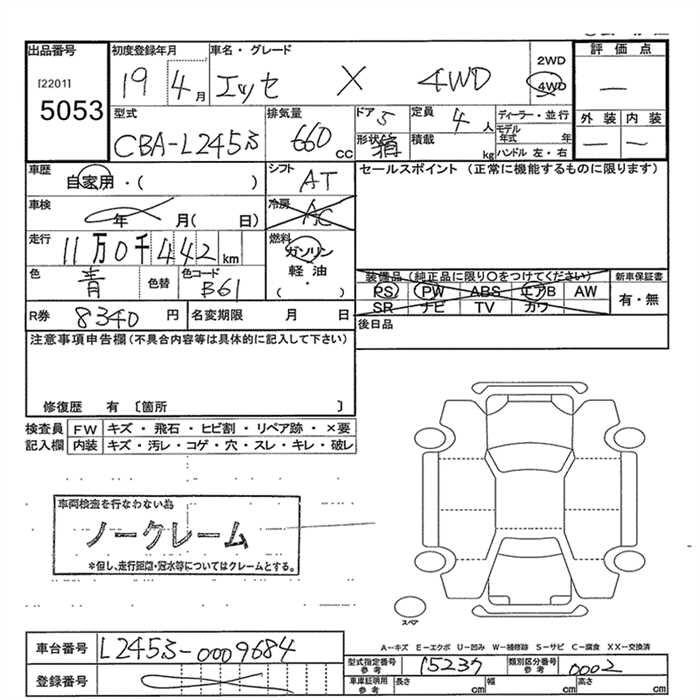 出品番号 初度登録年月 車名・グレード 評価点
[2201] 5053 19 4月 エッセ X 4WD 2WD 4WD —
型式 排気量 ドア 定員 ディーラー・並行 外装 内装
CBA-L245S 660cc 5 形状 箱 4人 積載 kg モデル年式 年 ハンドル 左・右 — —
車歴 自家用・( ) シフト AT セールスポイント (正常に機能するものに限ります)
車検 年 月( 日) 冷房 AC
走行 11万0千442km 燃料 ガソリン 軽油 ・ ( )
色 青 色替 色コード B61
装備品(純正品に限り○をつけてください) 新車保証書
PS PW ABS エアB AW 有・無
SR ナビ TV カワ
R券 8340円 名変期限 月 日 後日品
注意事項申告欄(不具合内容等は具体的に記入して下さい)
修復歴 有 〔箇所 〕
検査員 FW キズ・飛石・ヒビ割・リペア跡・×要
記入欄 内装 キズ・汚レ・コゲ・穴・スレ・キレ・破レ
車両検査を行なわない為
ノークレーム
*但し、走行距離・冠水等についてはクレームとする。
スペア
A−キズ E−エクボ U−凹み W−補修跡 S−サビ C−腐食 XX−交換済
車台番号 L245S-0009684
型式指定番号 参考 15237 類別区分番号 参考 0002
登録番号 車庫証明用 参考 長さ cm 幅 cm 高さ cm